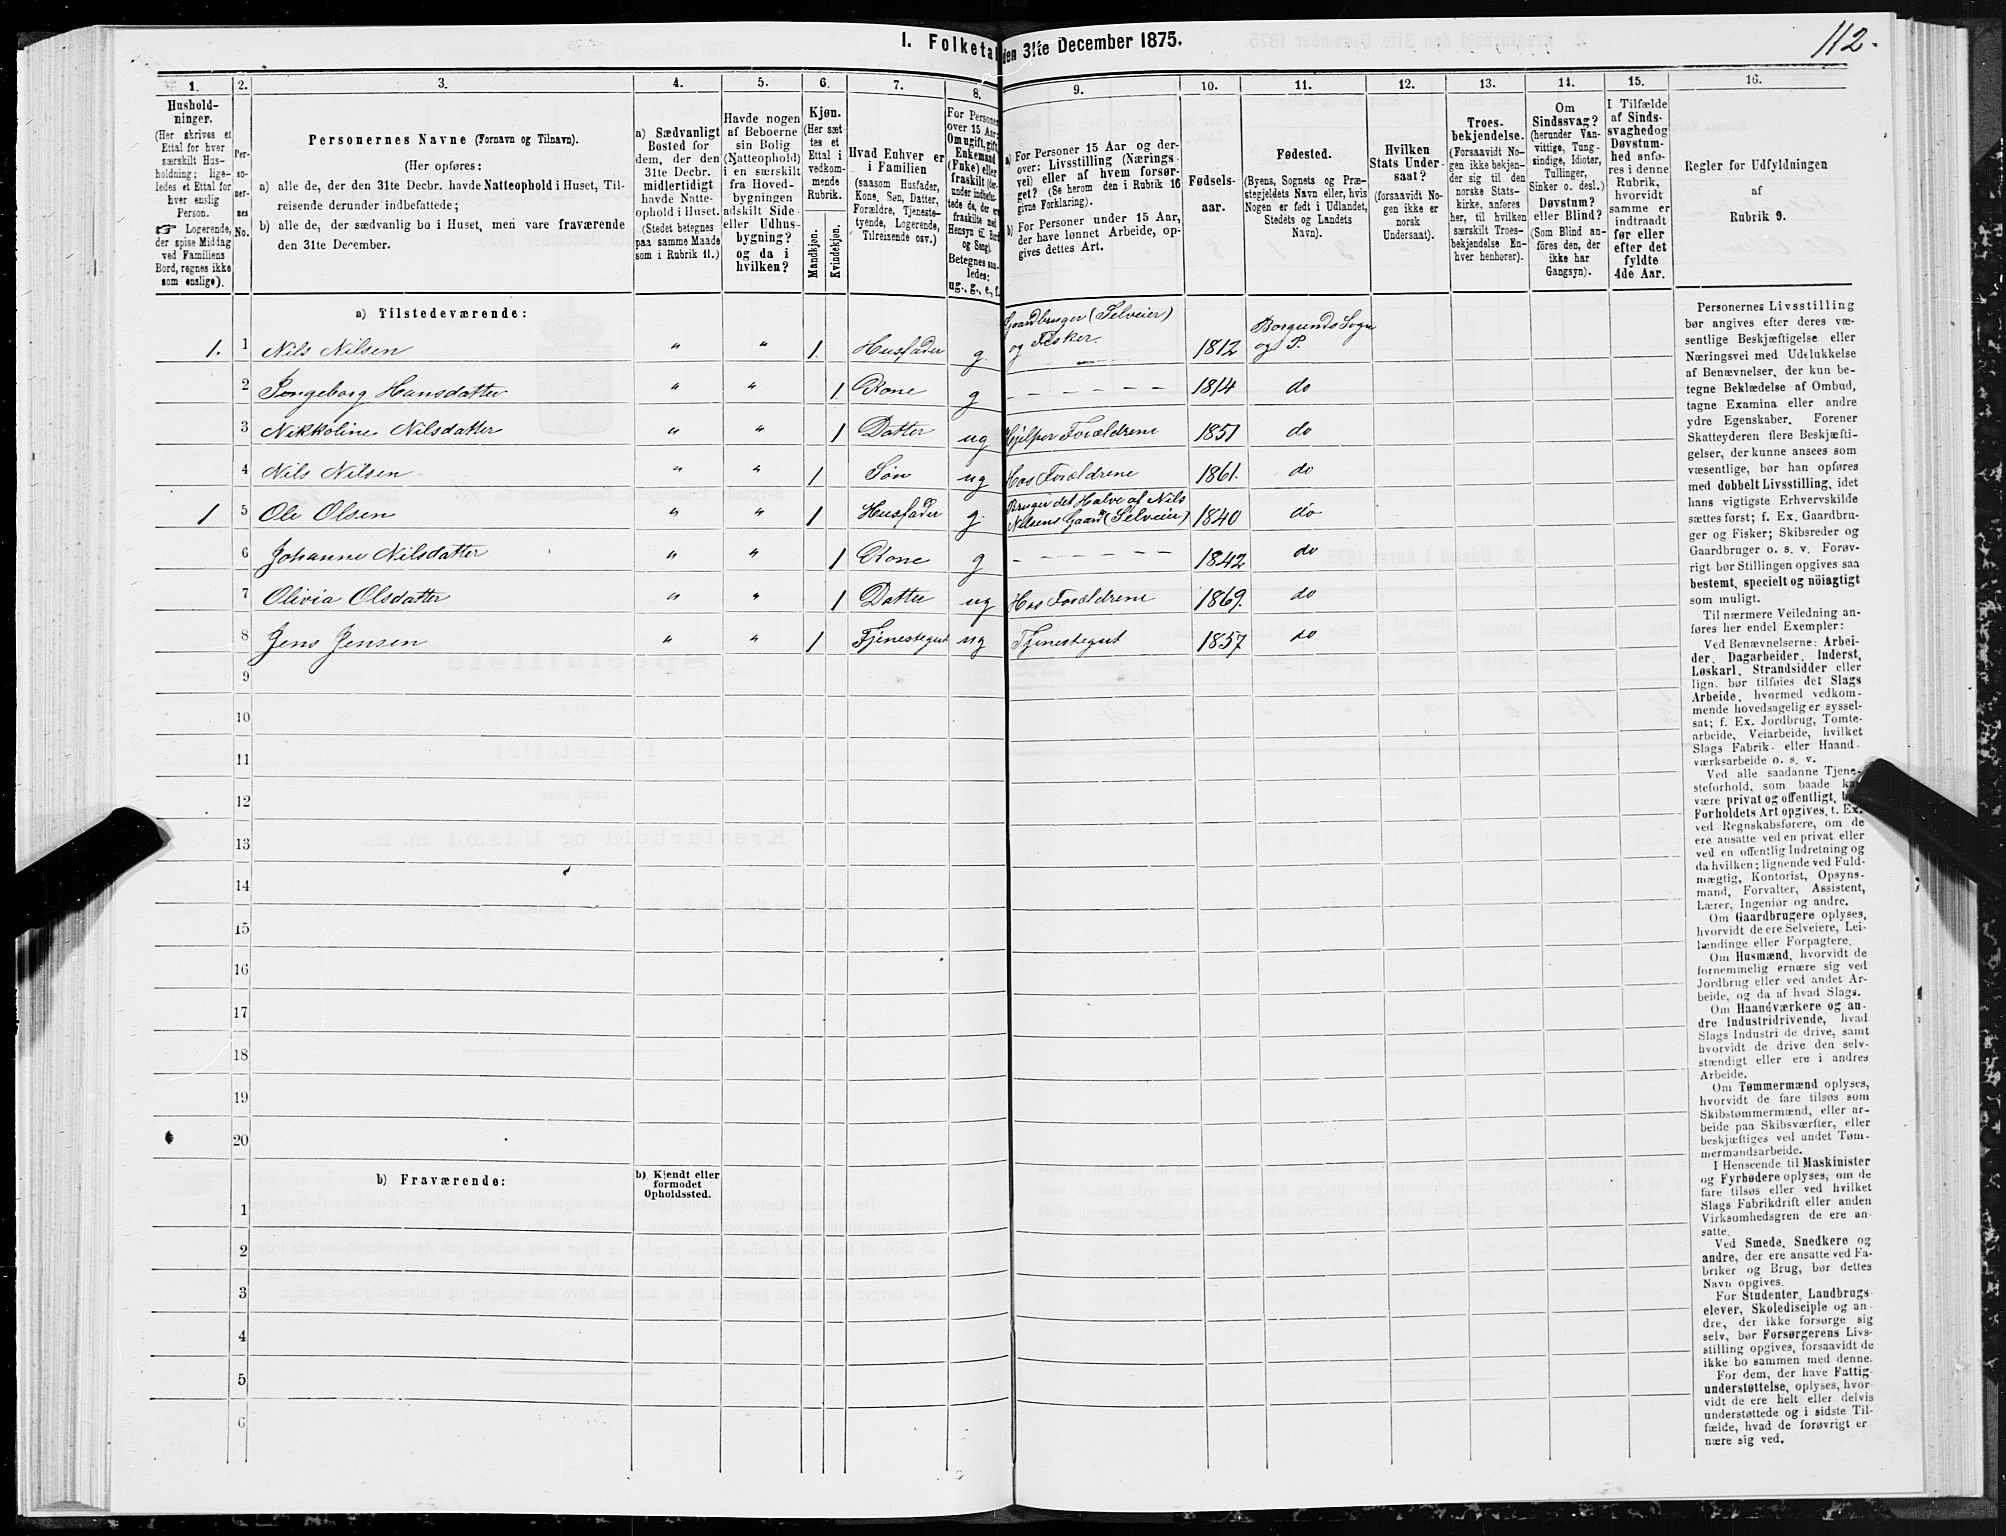 112.
1. Folketal den 31te December 1875.
1. 2. 3. 4. 5. 6. 7. 8. 9. 10. 11. 12. 13. 14. 15. 16.
Hushold-
ninger.
(Her skrives et
Ettal for hver
særskilt Hus-
holdning; lige-
ledes et Ettal for
hver enslig
Person.
☞ Logerende,
der spise Middag
ved Familiens
Bord, regnes ikke
som enslige).
Per-
so-
ner-
nes
No.
Personernes Navne (Fornavn og Tilnavn).
(Her opføres:
a) alle de, der den 31te Decbr. havde Natteophold i Huset, Til-
reisende derunder indbefattede;
b) alle de, der sædvanlig bo i Huset, men vare fraværende
den 31te December.
a) Sædvanligt
Bosted for
dem, der den
31te Decbr.
midlertidigt
havde Natte-
ophold i Huset.
(Stedet betegnes
paa samme Maade
som i Rubrik 11.)
Havde nogen
af Beboerne
sin Bolig
(Natteophold)
i en særskilt
fra Hoved-
bygningen
adskilt Side-
eller Udhus-
bygning?
og da i
hvilken?
Kjøn.
(Her sæt-
tes et
Ettal i
vedkom-
mende
Rubrik.
Mandkjøn.
Kvindekjøn.
Hvad Enhver er
i Familien
(saasom Husfader,
Kone, Søn, Datter,
Forældre, Tjeneste-
tyende, Logerende,
Tilreisende osv.)
For Personer
over 15 Aar:
Om ugift, gift,
Enkemand
(Enke) eller
fraskilt (der-
under indbefat-
tede de, der ere
fraskilte med
Hensyn til Bord
og Seng).
Betegnes saa-
ledes:
ug., g., e., f.
a) For Personer 15 Aar og der-
over: Livsstilling (Nærings-
vei) eller af hvem forsør-
get? (Se herom den i Rubrik 16
givne Forklaring).
b) For Personer under 15 Aar,
der have lønnet Arbeide, op-
gives dettes Art.
Fødsels-
aar.
Fødested.
(Byens, Sognets og Præ-
stegjeldets Navn eller, hvis
Nogen er født i Udlandet,
Stedets og Landets
Navn).
Hvilken
Stats Under-
saat?
(forsaavidt No-
gen ikke er
norsk
Undersaat).
Troes-
bekjendelse.
(Forsaavidt No-
gen ikke bekjen-
der sig til den
norske Stats-
kirke, anføres
her, til hvilken
særskilt Troes-
bekjendelse En-
hver henhører).
Om
Sindssvag?
(herunder Van-
vittige, Tung-
sindige, Idioter,
Tullinger,
Sinker o. desl.)
Døvstum?
eller Blind?
(Som Blind an-
føres den, der
ikke har
Gangsyn).
I Tilfælde
af Sinds-
svaghed og
Døvstum-
hed anfø-
res i denne
Rubrik,
hvorvidt
samme er
indtraadt
før eller
efter det
fyldte
4de Aar.
Regler for Udfyldningen
af
Rubrik 9.
a) Tilstedeværende:
1. 1 Nils Nilsen " " 1 Husfader g. Gaardbruger (Selveier) og Fisker. 1812 Borgunds Sogn og P.
2 Ingeborg Hansdatter " " 1 Kone g - - - - - - 1814 do
3 Nikkoline Nilsdatter " " 1 Datter ug Hjelper Forældrene 1851 do
4 Nils Nilsen " " 1 Søn ug Hos Forældrene 1861. do
1 5 Ole Olsen " " 1 Husfader g. Bruger det Halve af Nils Nilsens Gaard (Selveier) 1840 do
6 Johanne Nilsdatter " " 1 Kone g - - - - - - 1842 do
7 Olivia Olsdatter " " 1 Datter ug Hos Forældrene 1869. do
8 Jens Jensen " " 1 Tjenestegut ug Tjenestegut 1857 do
9
10
11
12
13
14
15
16
17
18
19
20
b) Fraværende:
b) Kjendt eller
formodet
Opholdssted.
1
2
3
4
5
6
Personernes Livsstilling
bør angives efter deres væ-
sentlige Beskjæftigelse eller
Næringsvei med Udelukkelse
af Benævnelser, der kun be-
tegne Beklædelse af Ombud,
tagne Examina eller andre
ydre Egenskaber. Forener
Skatteyderen flere Beskjæfti-
gelser, der kunne ansees som
væsentlige, bør han opføres
med dobbelt Livsstilling, idet
hans vigtigste Erhvervskilde
sættes først; f. Ex. Gaardbru-
ger og Fisker; Skibsreder og
Gaardbruger o. s. v. Forøv-
rigt bør Stillingen opgives saa
bestemt, specielt og nöiagtigt
som muligt.
Til nærmere Veiledning an-
føres her endel Exempler:
Ved Benævnelserne: Arbei-
der, Dagarbeider, Inderst,
Løskarl, Strandsidder eller
lign. bør tilføies det Slags
Arbeide, hvormed vedkom-
mende hovedsagelig er syssel-
sat; f. Ex. Jordbrug, Tomte-
arbeide, Veiarbeide, hvilket
Slags Fabrik- eller Haand-
værksarbeide o. s. v.
Ved alle saadanne Tjene-
steforhold, som baade kan
være privat og offentligt, bør
Forholdets Art opgives, f. Ex.
ved Regnskabsførere, om de
ere ansatte ved en privat eller
ved en offentlig Indretning og
da hvilken; lignende ved Fuld-
mægtig, Kontorist, Opsyns-
mand, Forvalter, Assistent,
Lærer, Ingeniør og andre.
Om Gaardbrugere oplyses,
hvorvidt de ere Selveiere, Lei-
lændinge eller Forpagtere.
Om Husmænd, hvorvidt de
fornemmelig ernære sig ved
Jordbrug eller ved andet Ar-
beide, og da af hvad Slags.
Om Haandværkere og an-
dre Industridrivende, hvad
Slags Industri de drive, samt
hvorvidt de drive den selv-
stændigt eller ere i andres
Arbeide.
Om Tømmermænd oplyses,
hvorvidt de fare tilsøs som
Skibstømmermænd, eller ar-
beide paa Skibsværfter, eller
beskjæftiges ved andet Tøm-
mermandsarbeide.
I Henseende til Maskinister
og Fyrbødere oplyses, om de
fare tilsøs eller ved hvilket
Slags Fabrikdrift eller anden
Virksomhedsgren de ere an-
satte.
Ved Smede, Snedkere og
andre, der ere ansatte ved Fa-
briker og Brug, bør dettes
Navn opgives.
For Studenter, Landbrugs-
elever, Skoledisciple og an-
dre, der ikke forsørge sig
selv, bør Forsørgerens Livs-
stilling opgives, forsaavidt de
ikke bo sammen med denne.
For dem, der have Fattig-
understøttelse, oplyses, hvor-
vidt de ere helt eller delvis
understøttede og i sidste Til-
fælde, hvad de forøvrigt er
nære sig ved.